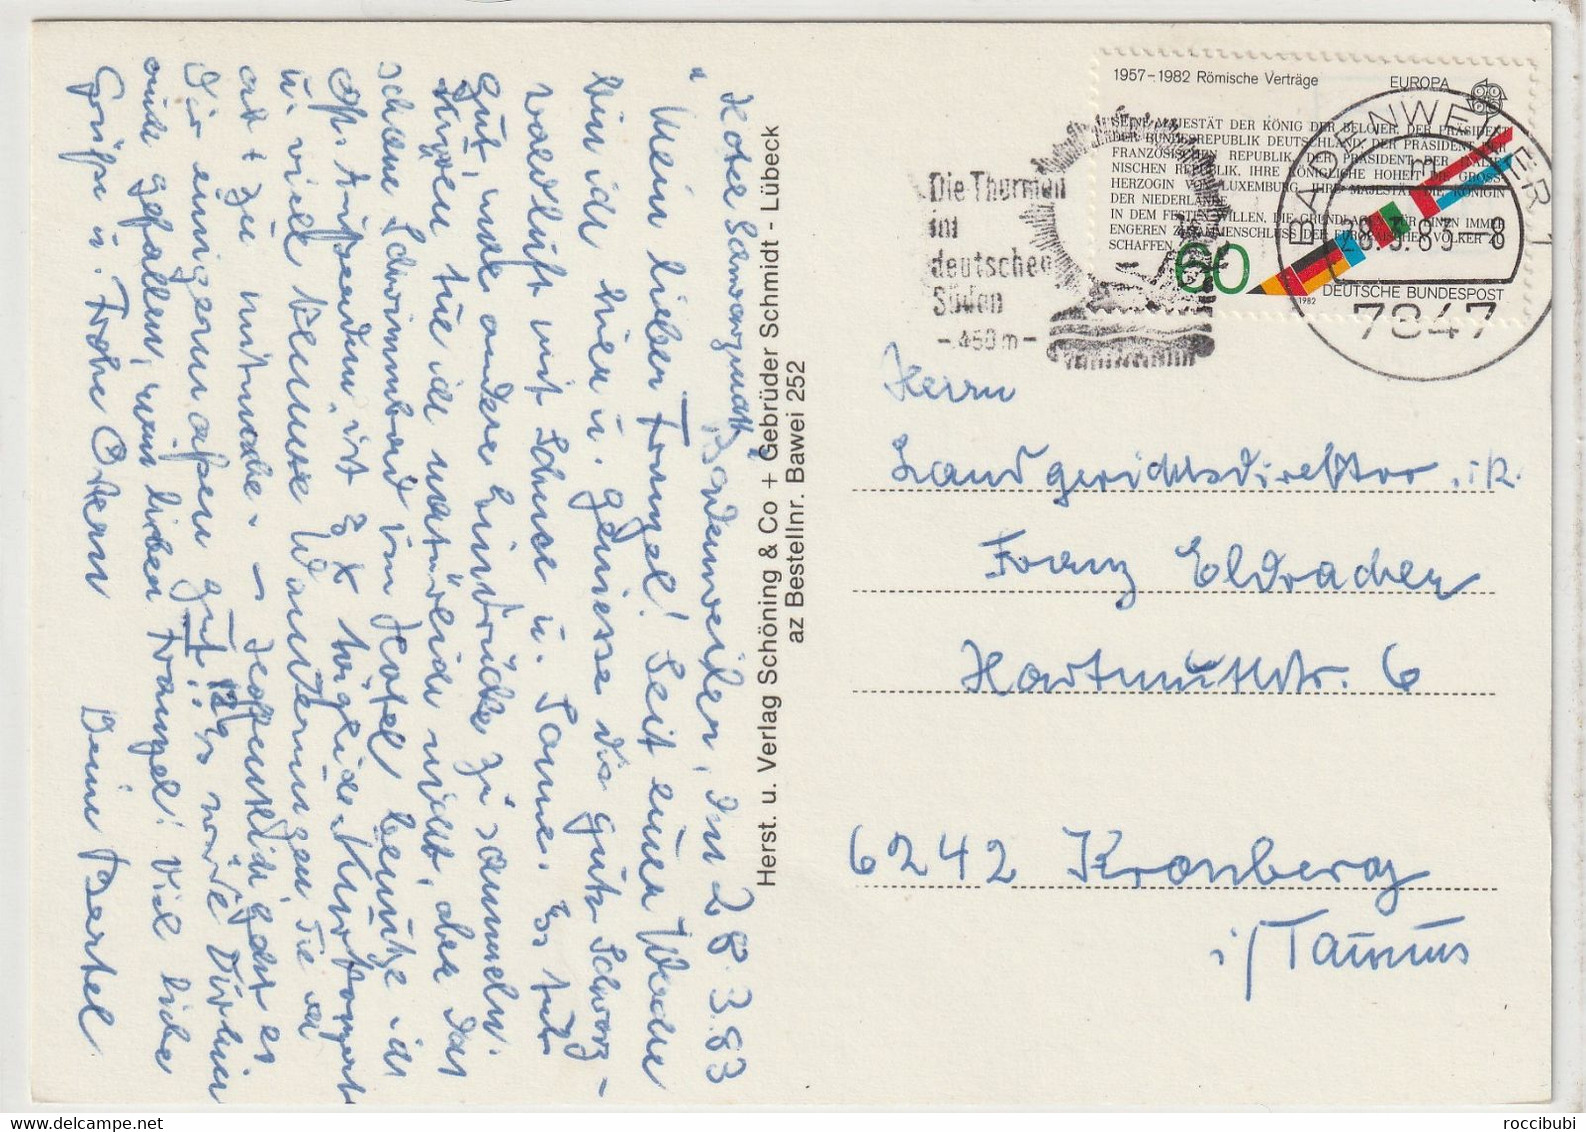 "Hotel Schwarzmatt"
Badenweiler, den 28.3.83
Mein lieber Franzel! Seit einer Woche
bin ich hier u. geniesse die gute Schwarz-
waldluft mit Schnee u. Sonne. Es tut
gut, mal andere Eindrücke zu sammeln.
Kuren tue ich natürlich nicht, aber das
schöne Schwimmbad im Hotel benutze ich
oft. Ausserdem ist 3 x täglich Kurkonzert
u. viele schöne Wanderungen, die ich
alle mitmache. – Hoffentlich geht es
Dir einigermaßen gut!! Es würde Dir hier
auch gefallen, mein lieber Franzel! Viel liebe
Grüße u. Frohe Ostern Dein Bertel
Herst. u. Verlag Schöning & Co + Gebrüder Schmidt - Lübeck
az Bestellnr. Bawei 252
1957–1982 Römische Verträge
EUROPA
SEINE MAJESTÄT DER KÖNIG DER BELGIER, DER PRÄSIDENT
DER BUNDESREPUBLIK DEUTSCHLAND, DER PRÄSIDENT DER
FRANZÖSISCHEN REPUBLIK, DER PRÄSIDENT DER ITALIE-
NISCHEN REPUBLIK, IHRE KÖNIGLICHE HOHEIT DIE GROSS-
HERZOGIN VON LUXEMBURG, IHRE MAJESTÄT DIE KÖNIGIN
DER NIEDERLANDE,
IN DEM FESTEN WILLEN, DIE GRUNDLAGEN FÜR EINEN IMMER
ENGEREN ZUSAMMENSCHLUSS DER EUROPÄISCHEN VÖLKER ZU
SCHAFFEN,
60
1982
DEUTSCHE BUNDESPOST
BADENWEILER 1
m
28.3.83 -8
7847
Die Thermen
im
deutschen
Süden
- 450 m -
Herrn
Landgerichtsdirektor i.R.
Franz Eldracher
Hartmutstr. 6
6242 Kronberg
i/Taunus
roccibubi